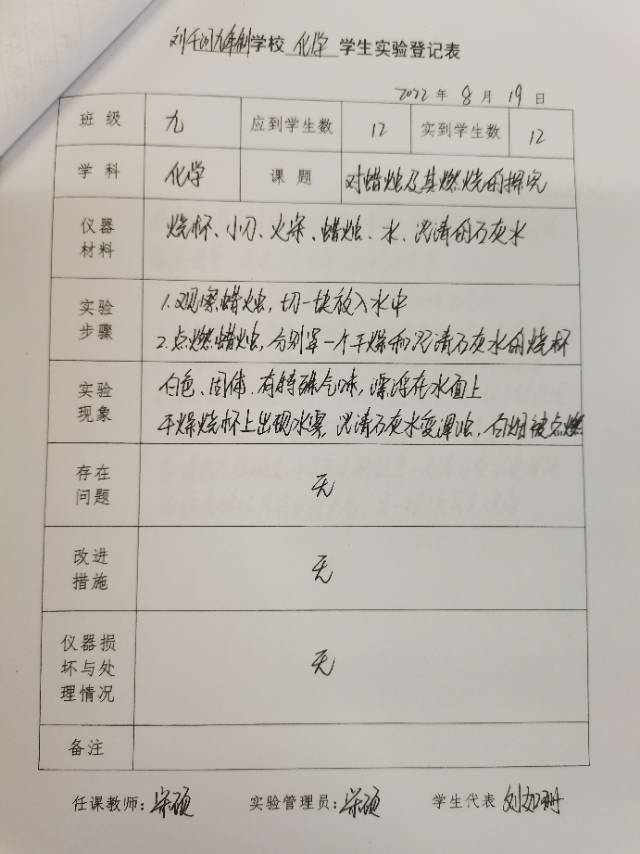 刘千河九年制学校 化学 学生实验登记表
2022 年 8 月 19 日
班级 九 应到学生数 12 实到学生数 12
学科 化学 课题 对蜡烛及其燃烧的探究
仪器材料 烧杯、小刀、火柴、蜡烛、水、澄清的石灰水
实验步骤 1.观察蜡烛,切一块放入水中
2.点燃蜡烛,分别罩一个干燥和澄清石灰水的烧杯
实验现象 白色、固体、有特殊气味,漂浮在水面上
干燥烧杯上出现水雾,澄清石灰水变浑浊,白烟被点燃
存在问题 无
改进措施 无
仪器损坏与处理情况 无
备注
任课教师: 实验管理员: 学生代表